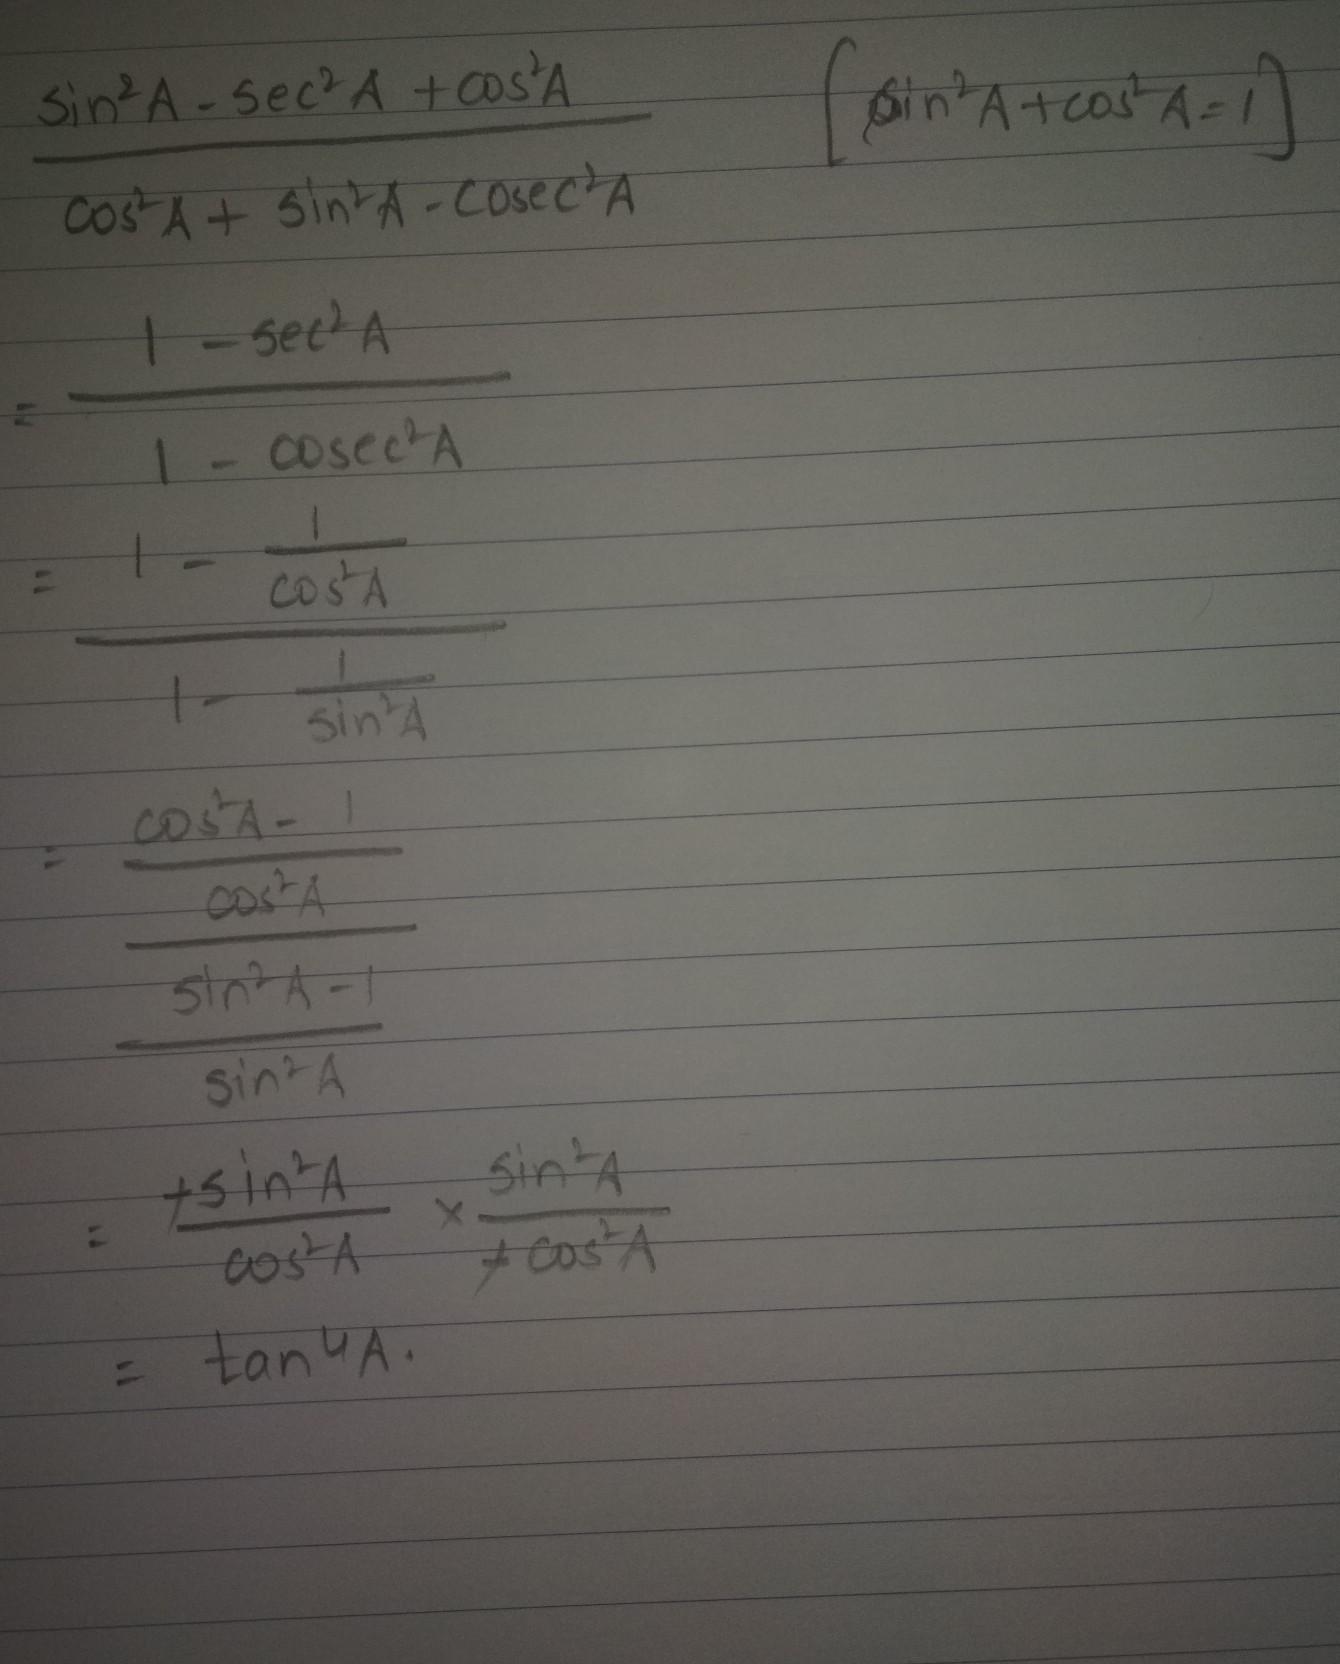 sin²A - sec²A + cos²A [sin²A + cos²A = 1]
cos²A + sin²A - cosec²A
1 - sec²A
=
1 - cosec²A
= 1 - 1
cos²A
1 - 1
sin²A
= cos²A - 1
cos²A
sin²A - 1
sin²A
= +sin²A × sin²A
cos²A + cos²A
= tan⁴A.